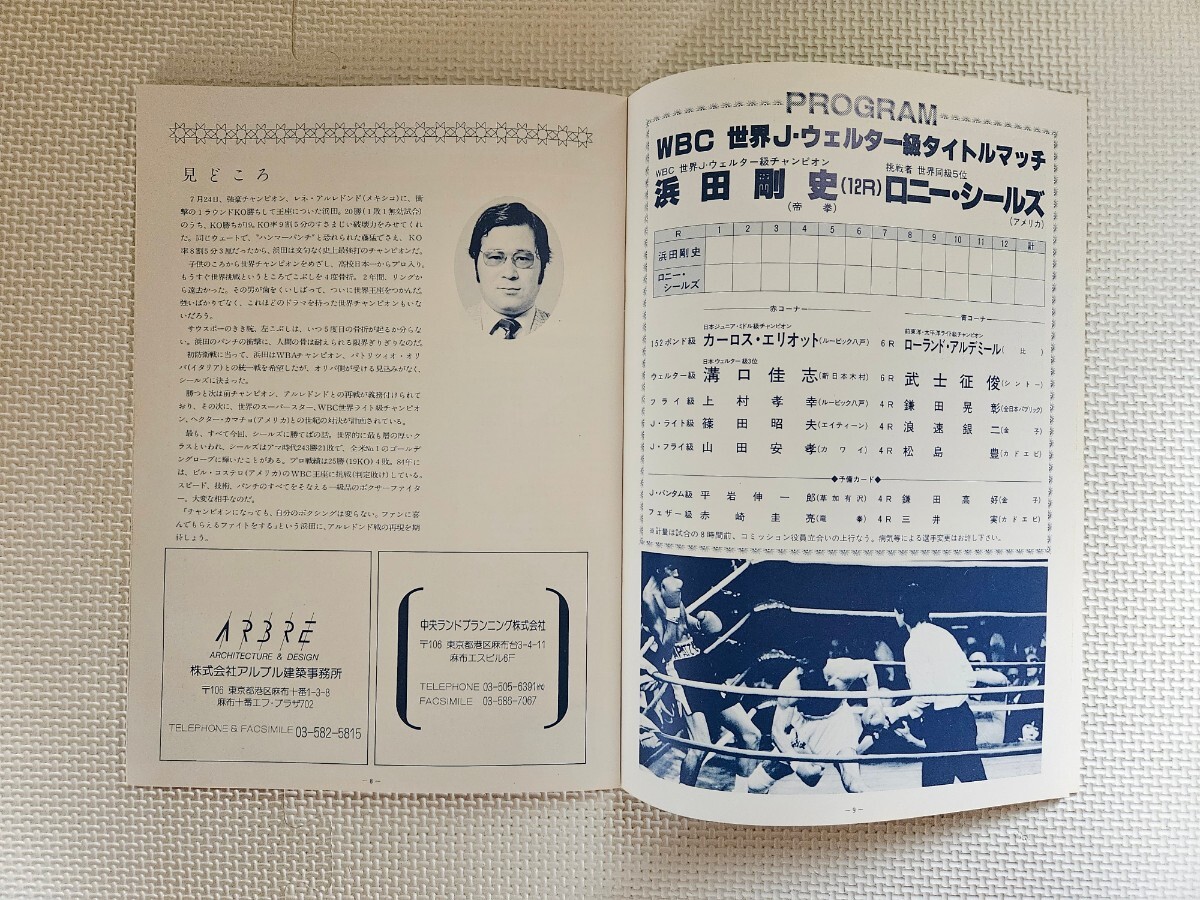 見どころ
7月24日、強豪チャンピオン、レネ・アルレドンド(メキシコ)に、衝
撃の1ラウンドKO勝ちして王座についた浜田。20勝(1敗1無効試合)
のうち、KO勝ちが19。KO率9割5分のすさまじい破壊力をみせてくれ
た。同じウェートで、"ハンマーパンチ"と恐れられた藤猛でさえ、KO
率8割5分3厘だったから、浜田は文句なく史上最強打のチャンピオンだ。
子供のころから世界チャンピオンをめざし、高校日本一からプロ入り。
もうすぐ世界挑戦というところでこぶしを4度骨折。2年間、リングか
ら遠去かった。その男が歯をくいしばって、ついに世界王座をつかんだ。
強いばかりでなく、これほどのドラマを持った世界チャンピオンもいな
いだろう。
サウスポーのきき腕、左こぶしは、いつ5度目の骨折が起るか分らな
い。浜田のパンチの衝撃に、人間の骨は耐えられる限界ぎりぎりなのだ。
初防衛戦に当って、浜田はWBAチャンピオン、パトリツィオ・オリ
バ(イタリア)との統一戦を希望したが、オリバ側が受ける見込みがなく、
シールズに決まった。
勝つと次は前チャンピオン、アルレドンドとの再戦が義務付けられて
おり、その次に、世界のスーパースター、WBC世界ライト級チャンピオ
ン、ヘクター・カマチョ(アメリカ)との世紀の対決が計画されている。
最も、すべて今回、シールズに勝てばの話。世界的に最も層の厚いク
ラスといわれ、シールズはアマ時代243勝21敗で、全米No.1のゴールデ
ングローブに輝いたことがある。プロ戦績は25勝(19KO)4敗。84年に
は、ビル・コステロ(アメリカ)のWBC王座に挑戦(判定敗け)している。
スピード、技術、パンチのすべてをそなえる一級品のボクサーファイタ
ー。大変な相手なのだ。
「チャンピオンになっても、自分のボクシングは変らない。ファンに喜
んでもらえるファイトをする」という浜田に、アルレドンド戦の再現を期
待しよう。
ARBRE
ARCHITECTURE & DESIGN
株式会社アルブル建築事務所
〒106 東京都港区麻布十番1-3-8
麻布十番エフ・プラザ702
TELEPHONE & FACSIMILE 03-582-5815
中央ランドプランニング株式会社
〒106 東京都港区麻布台3-4-11
麻布エスビル6F
TELEPHONE 03-505-6391㈹
FACSIMILE 03-586-7067
— 8 —
PROGRAM
WBC 世界J・ウェルター級タイトルマッチ
WBC 世界J・ウェルター級チャンピオン 挑戦者 世界同級5位
浜田剛史(12R)ロニー・シールズ
(帝拳) (アメリカ)
R 1 2 3 4 5 6 7 8 9 10 11 12 計
浜田剛史
ロニー・
シールズ
赤コーナー 青コーナー
日本ジュニア・ミドル級チャンピオン 前東洋・太平洋ライト級チャンピオン
152ポンド級 カーロス・エリオット(ルービック八戸) 6R ローランド・アルデミール(比)
日本ウェルター級3位
ウェルター級 溝口佳志(新日本木村) 6R 武士征俊(シントー)
フライ級 上村孝幸(ルービック八戸) 4R 鎌田晃彰(全日本パブリック)
J・ライト級 篠田昭夫(エイティーン) 4R 浪速銀二(金子)
J・フライ級 山田安孝(カワイ) 4R 松島豊(カドエビ)
◆予備カード◆
J・バンタム級 平岩伸一郎(草加有沢) 4R 鎌田高好(金子)
フェザー級 赤崎圭亮(竜拳) 4R 三井実(カドエビ)
※計量は試合の8時間前、コミッション役員立合いの上行なう。病気等による選手変更はお許し下さい。
— 9 —